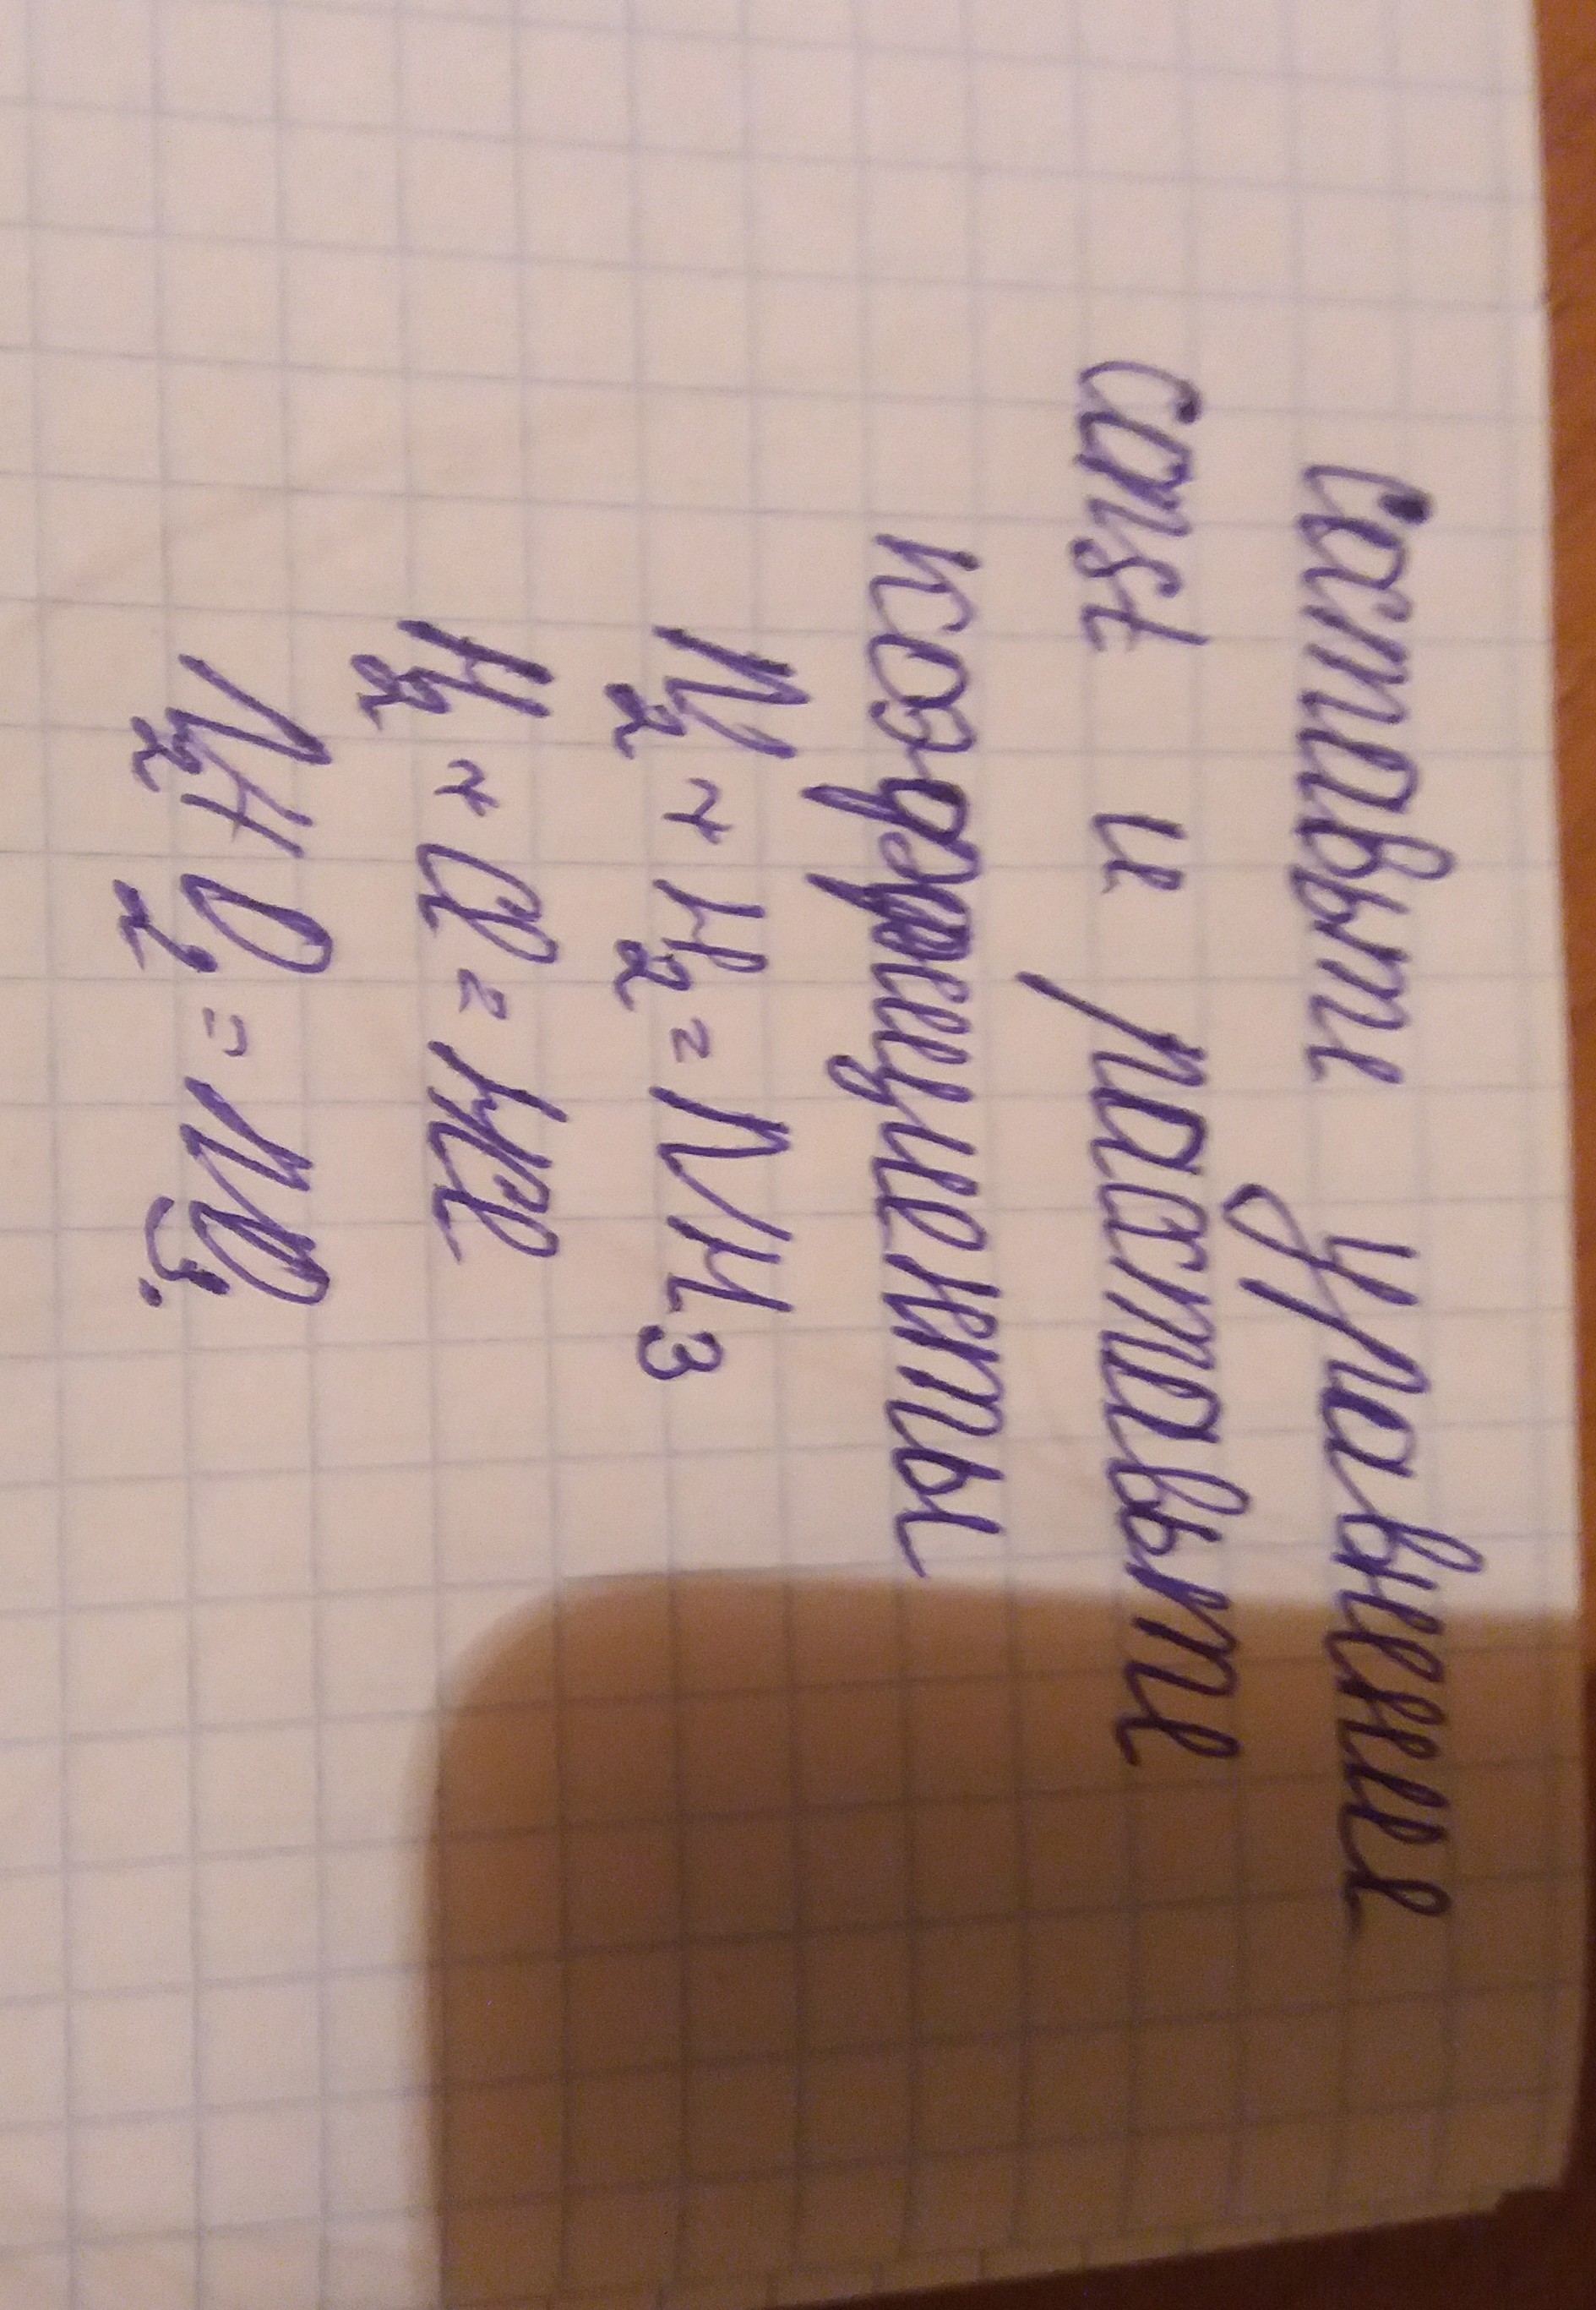 составьте уравнение
const и расставьте
коэффициенты
N₂ + H₂ = NH₃
H₂ + Cl = HCl
N₂ + O₂ = NO